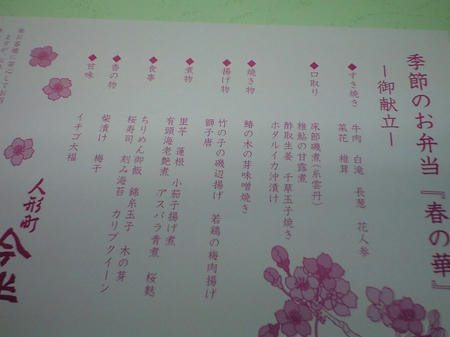 季節のお弁当『春の華』
ー御献立ー
◆すき焼き
牛肉 白滝 長葱 花人参
菜花 椎茸
◆口取り
床節磯煮(糸雲丹)
稚鮎の甘露煮
酢取生姜 千草玉子焼き
ホタルイカ沖漬け
◆焼き物
鰆の木の芽味噌焼き
◆揚げ物
竹の子の磯辺揚げ 若鶏の梅肉揚げ
獅子唐
◆煮物
里芋 蓮根 小茄子揚げ煮
有頭海老艶煮 アスパラ青煮 桜麩
◆食事
ちりめん御飯 錦糸玉子 木の芽
桜寿司 刻み海苔 カリプクイーン
◆香の物
柴漬け 梅干
◆甘味
イチゴ大福
人形町
今半